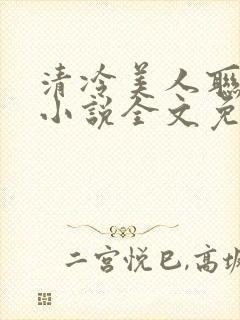 清冷美人联
小说全文免
二宫悦巳,高坂